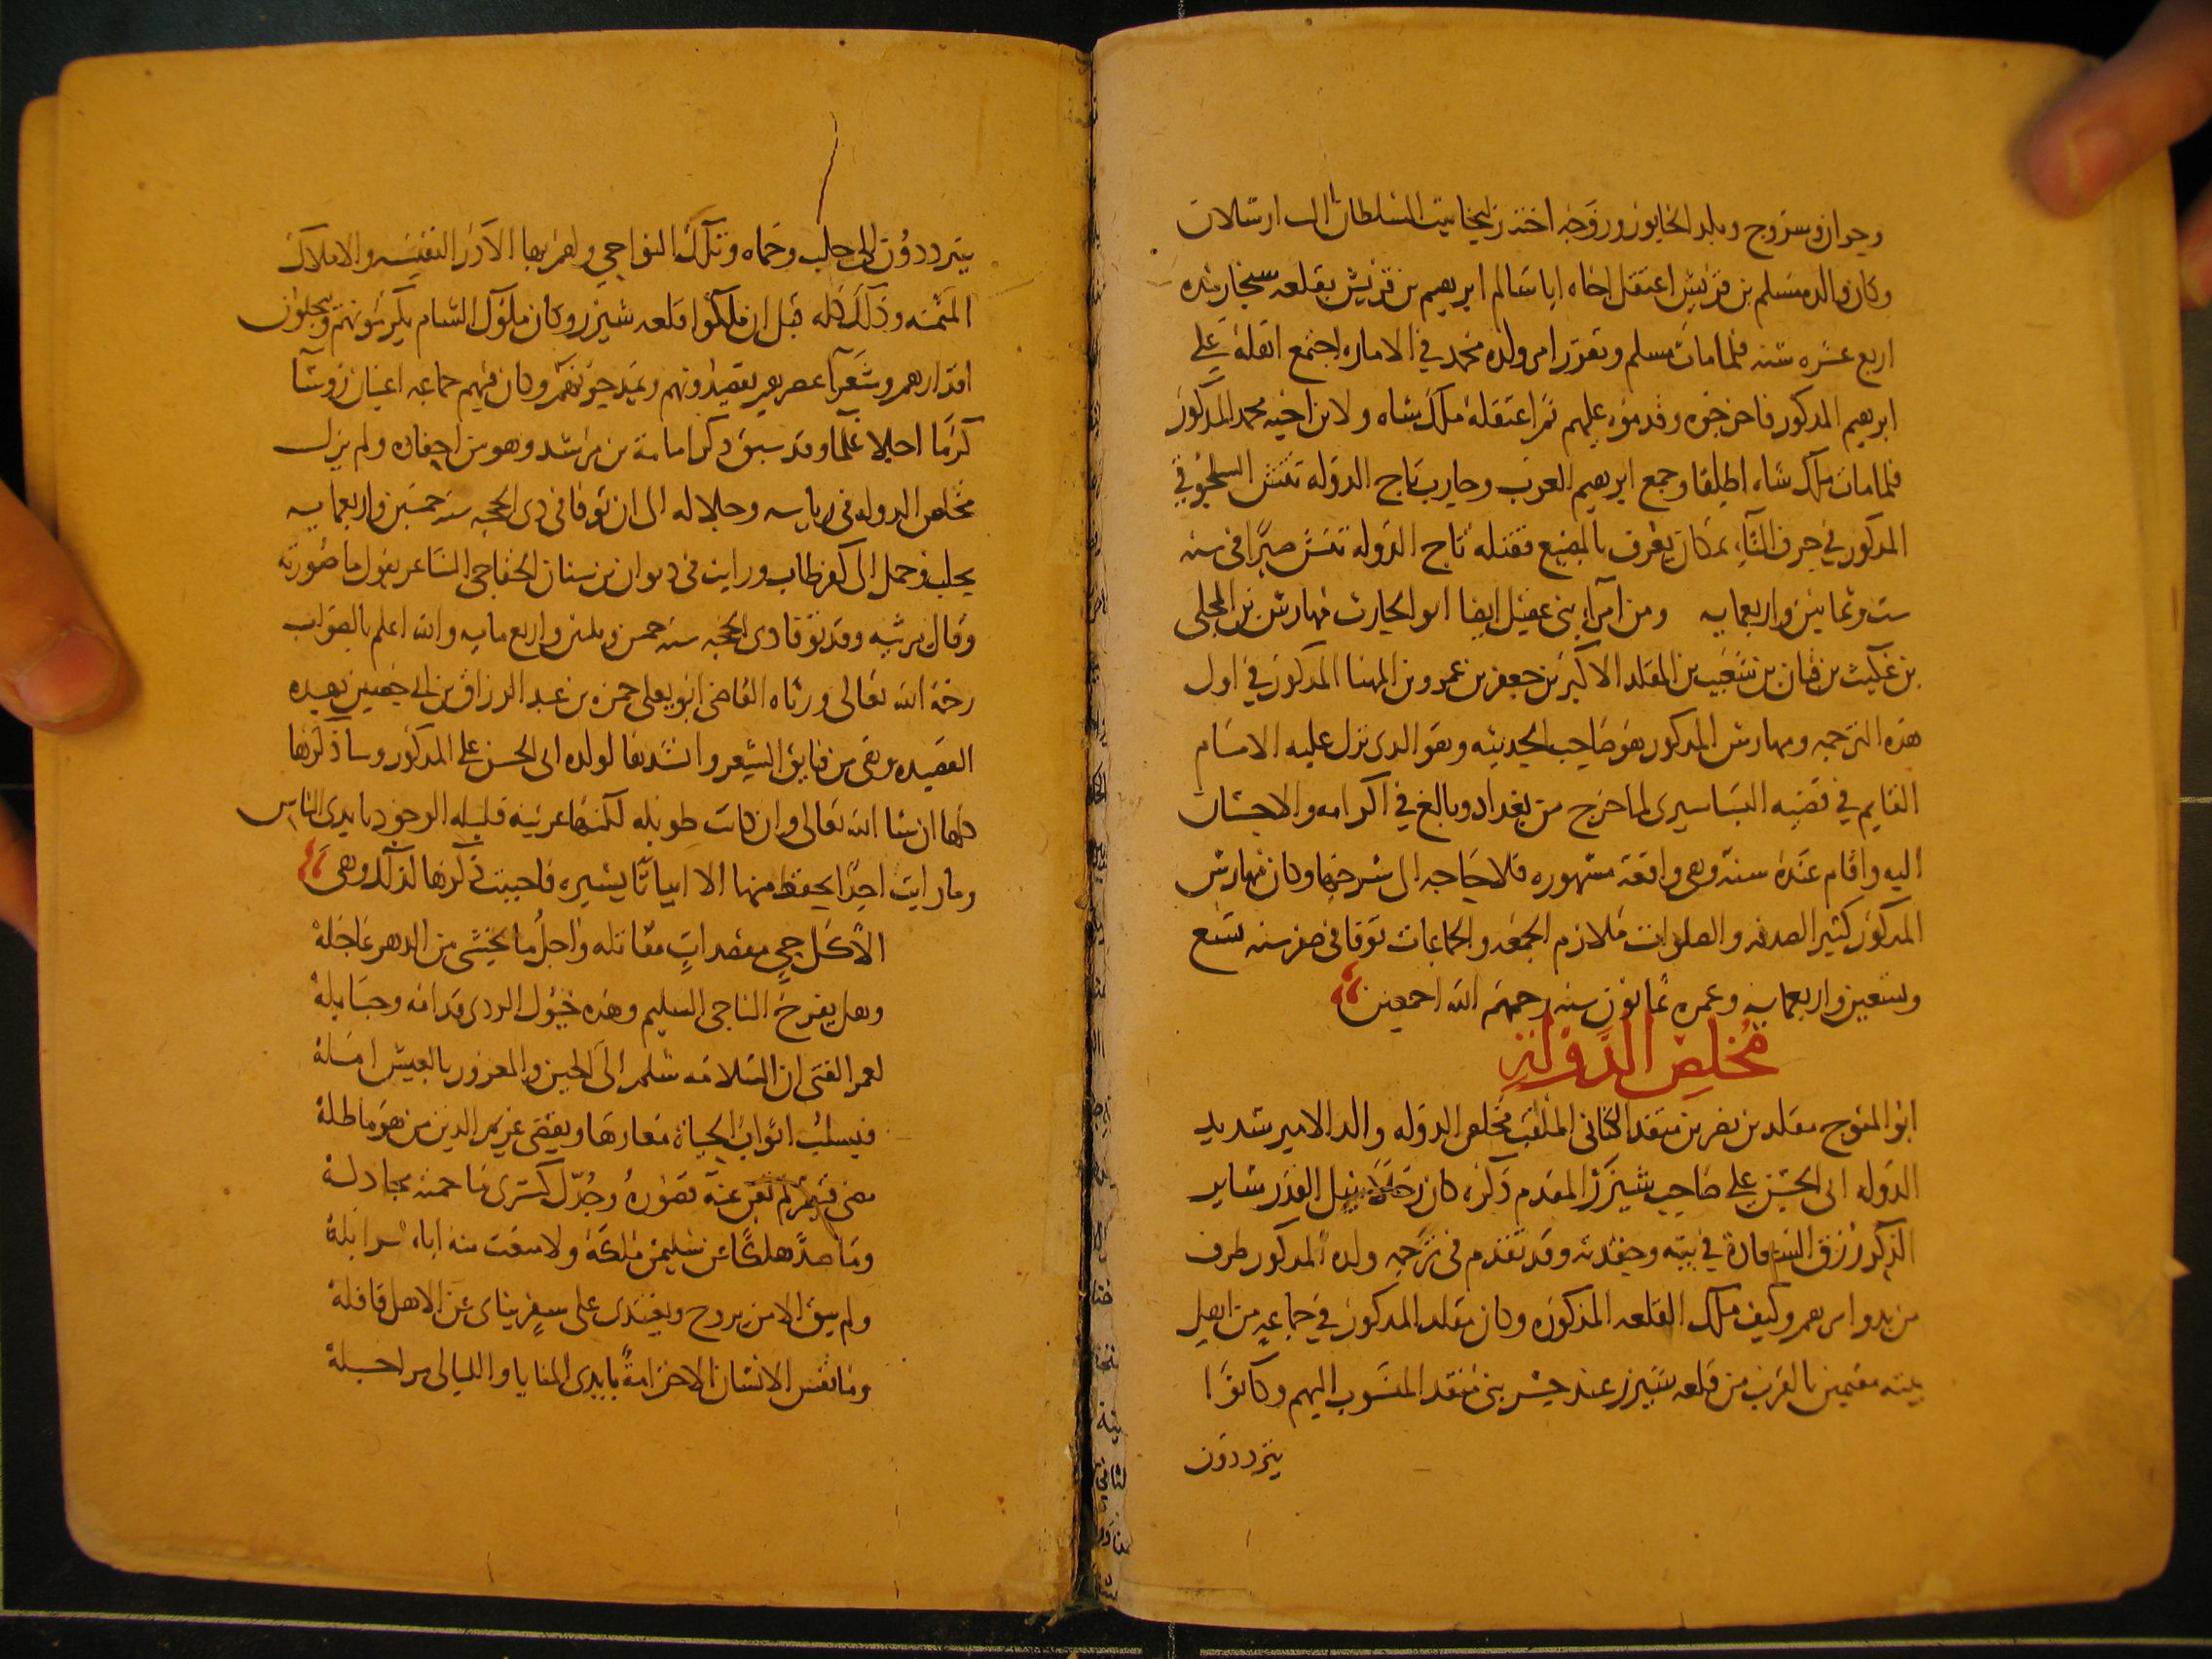 وحران وسروج وبلد الخابور وزوجه اخته زليخا بنت السلطان الب ارسلان
وكان والده مسلم بن قريش اعتقل اخاه ابا سالم ابرهيم بن قريش بقلعه سنجار مده
اربع عشره سنه فلما مات مسلم وتقرر امر ولده محمد في الاماره اجتمع اهله على
ابرهيم المذكور فاخرجوه وقدموه عليهم ثم اعتقله ملك شاه ولابن اخيه محمد المذكور
فلما مات ملك شاه اطلقا وجمع ابرهيم العرب وحارب تاج الدوله تتش السلجوقي
المذكور في حرف التاء بمكان يعرف بالمضيع فقتله تاج الدوله تتش صبرا في سنه
ست وثمانين واربعمايه ومن امراء بني عقيل ايضا ابو الحارث مهارش بن المجلى
بن عكيث بن قبان بن شعيب بن المقلد الاكبر بن جعفر بن عمرو بن المهنا المذكور في اول
هذه الترجمه ومهارش المذكور هو صاحب الحديثه وهو الذي نزل عليه الامام
القايم في قضيه البساسيرى لما خرج من بغداد وبالغ في اكرامه والاحسان
اليه واقام عنده سنة وهى واقعة مشهوره فلا حاجه الى شرحها وكان مهارش
المذكور كثير الصدقه والصلوات ملازم الجمعه والجماعات توفا في صفر سنه تسع
وتسعين واربعمايه وعمره ثمانون سنه رحمهم الله اجمعين
مخلص الدولة
ابو المتوج مقلد بن نصر بن منقذ الكناني الملقب مخلص الدوله والد الامير سديد
الدوله ابى الحسن على صاحب شيزر المقدم ذكره كان رجلا نبيل القدر ساير
الذكر رزق السعادة في بيته وحفدته وقد تقدم في ترجمه ولده المذكور طرف
من بدو امرهم وكيف ملك القلعه المذكوره وكان مقلد المذكور في جماعه من اهل
بيته مقيمين بالقرب من قلعه شيزر عند جسر بنى منقذ المنسوب اليهم وكانوا
يترددون
يترددون الى حلب وحماه وتلك النواحي ولهم بها الادر النفيسه والاملاك
المثمنه وذلك كله قبل ان ملكوا قلعه شيزر وكان ملوك الشام يكرمونهم ويجلون
اقدارهم وشعرآ عصرهم يقصدونهم ويمدحونهم وكان فيهم جماعه اعيان روسا
كرما اجلا علما وقد سبق ذكر اسامة بن مرشد وهو من احفاده ولم يزل
مخلص الدوله في رياسه وجلاله الى ان توفا في ذى الحجه سنه خمسين واربعمايه
بحلب وحمل الى كفر طاب ورايت في ديوان بن سنان الخفاجى الشاعر يقول ما صورته
وقال يرثيه وقد توفا ذى الحجه سنه خمس وثلثين واربع مايه والله اعلم بالصواب
رحمه الله تعالى ورثاه القاضى ابو يعلى حمزه بن عبد الرزاق بن ابى حصين بهذه
القصيده وهى من فايق الشعر وانشدها لولده ابى الحسن على المذكور وساذكرها
كلها ان شا الله تعالى وان كانت طويله لكنها غريبة قليله الوجود بايدى الناس
وما رايت احدا يحفظ منها الا ابياتا يسيره فاحببت ذكرها لذلك وهى
الا كل حى مقصدات مقاتله واجل ما يخشى من الدهر عاجلة
وهل يفرح الناجى السليم وهذه خيول الردى قدامه وحبايلة
لعمر الفتى ان السلامه سلم الى الحين والمغرور بالعيش املة
فيسلب اثواب الحياة معارها ويقضى غريم الدين من هو ماطلة
مضى قيصر لم تغن عنه قصوره وجدل كسرى ما حمته مجادلة
وما صد هلكا عن سليمن ملكه ولا منعت منه اباه سرابلة
ولم يبق الا من يروح ويغتدى على سفر يناى عن الاهل قافلة
وما نفس الانسان الا خزامة بايدى المنايا والليالى مراحلة